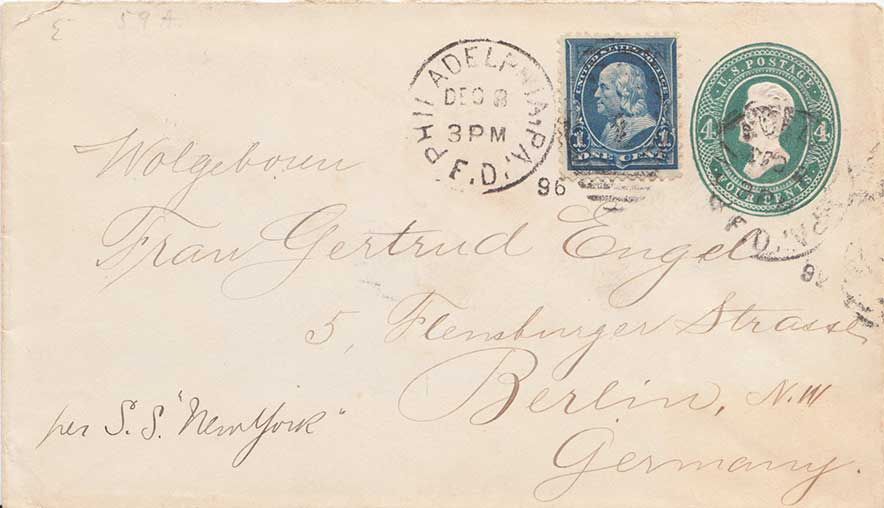 59A
PHILADELPHIA, PA.
DEC 8
3 PM
F.D.
96
UNITED STATES POSTAGE
1 1
ONE CENT
U.S. POSTAGE
4 4
FOUR CENTS
Wolgeboren
Frau Gertrud Engel
5, Flensburger Strasse
Berlin, N.W
Germany.
per S.S. "New York"